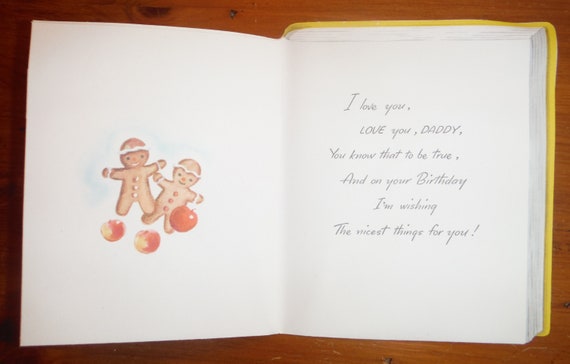 I love you,
LOVE you, DADDY,
You know that to be true,
And on your Birthday
I'm wishing
The nicest things for you!